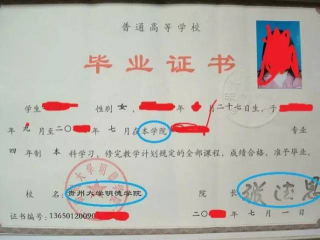 普通高等学校
毕业证书
学生 性别 女, 年 月二十七日生,于
年 九月至二〇 年 七月在本学院 专业
四年制 本科学习,修完教学计划规定的全部课程,成绩合格,准予毕业。
校 名: 贵州大学明德学院 院 长:
证书编号: 13650120090 二〇 年 七月一日